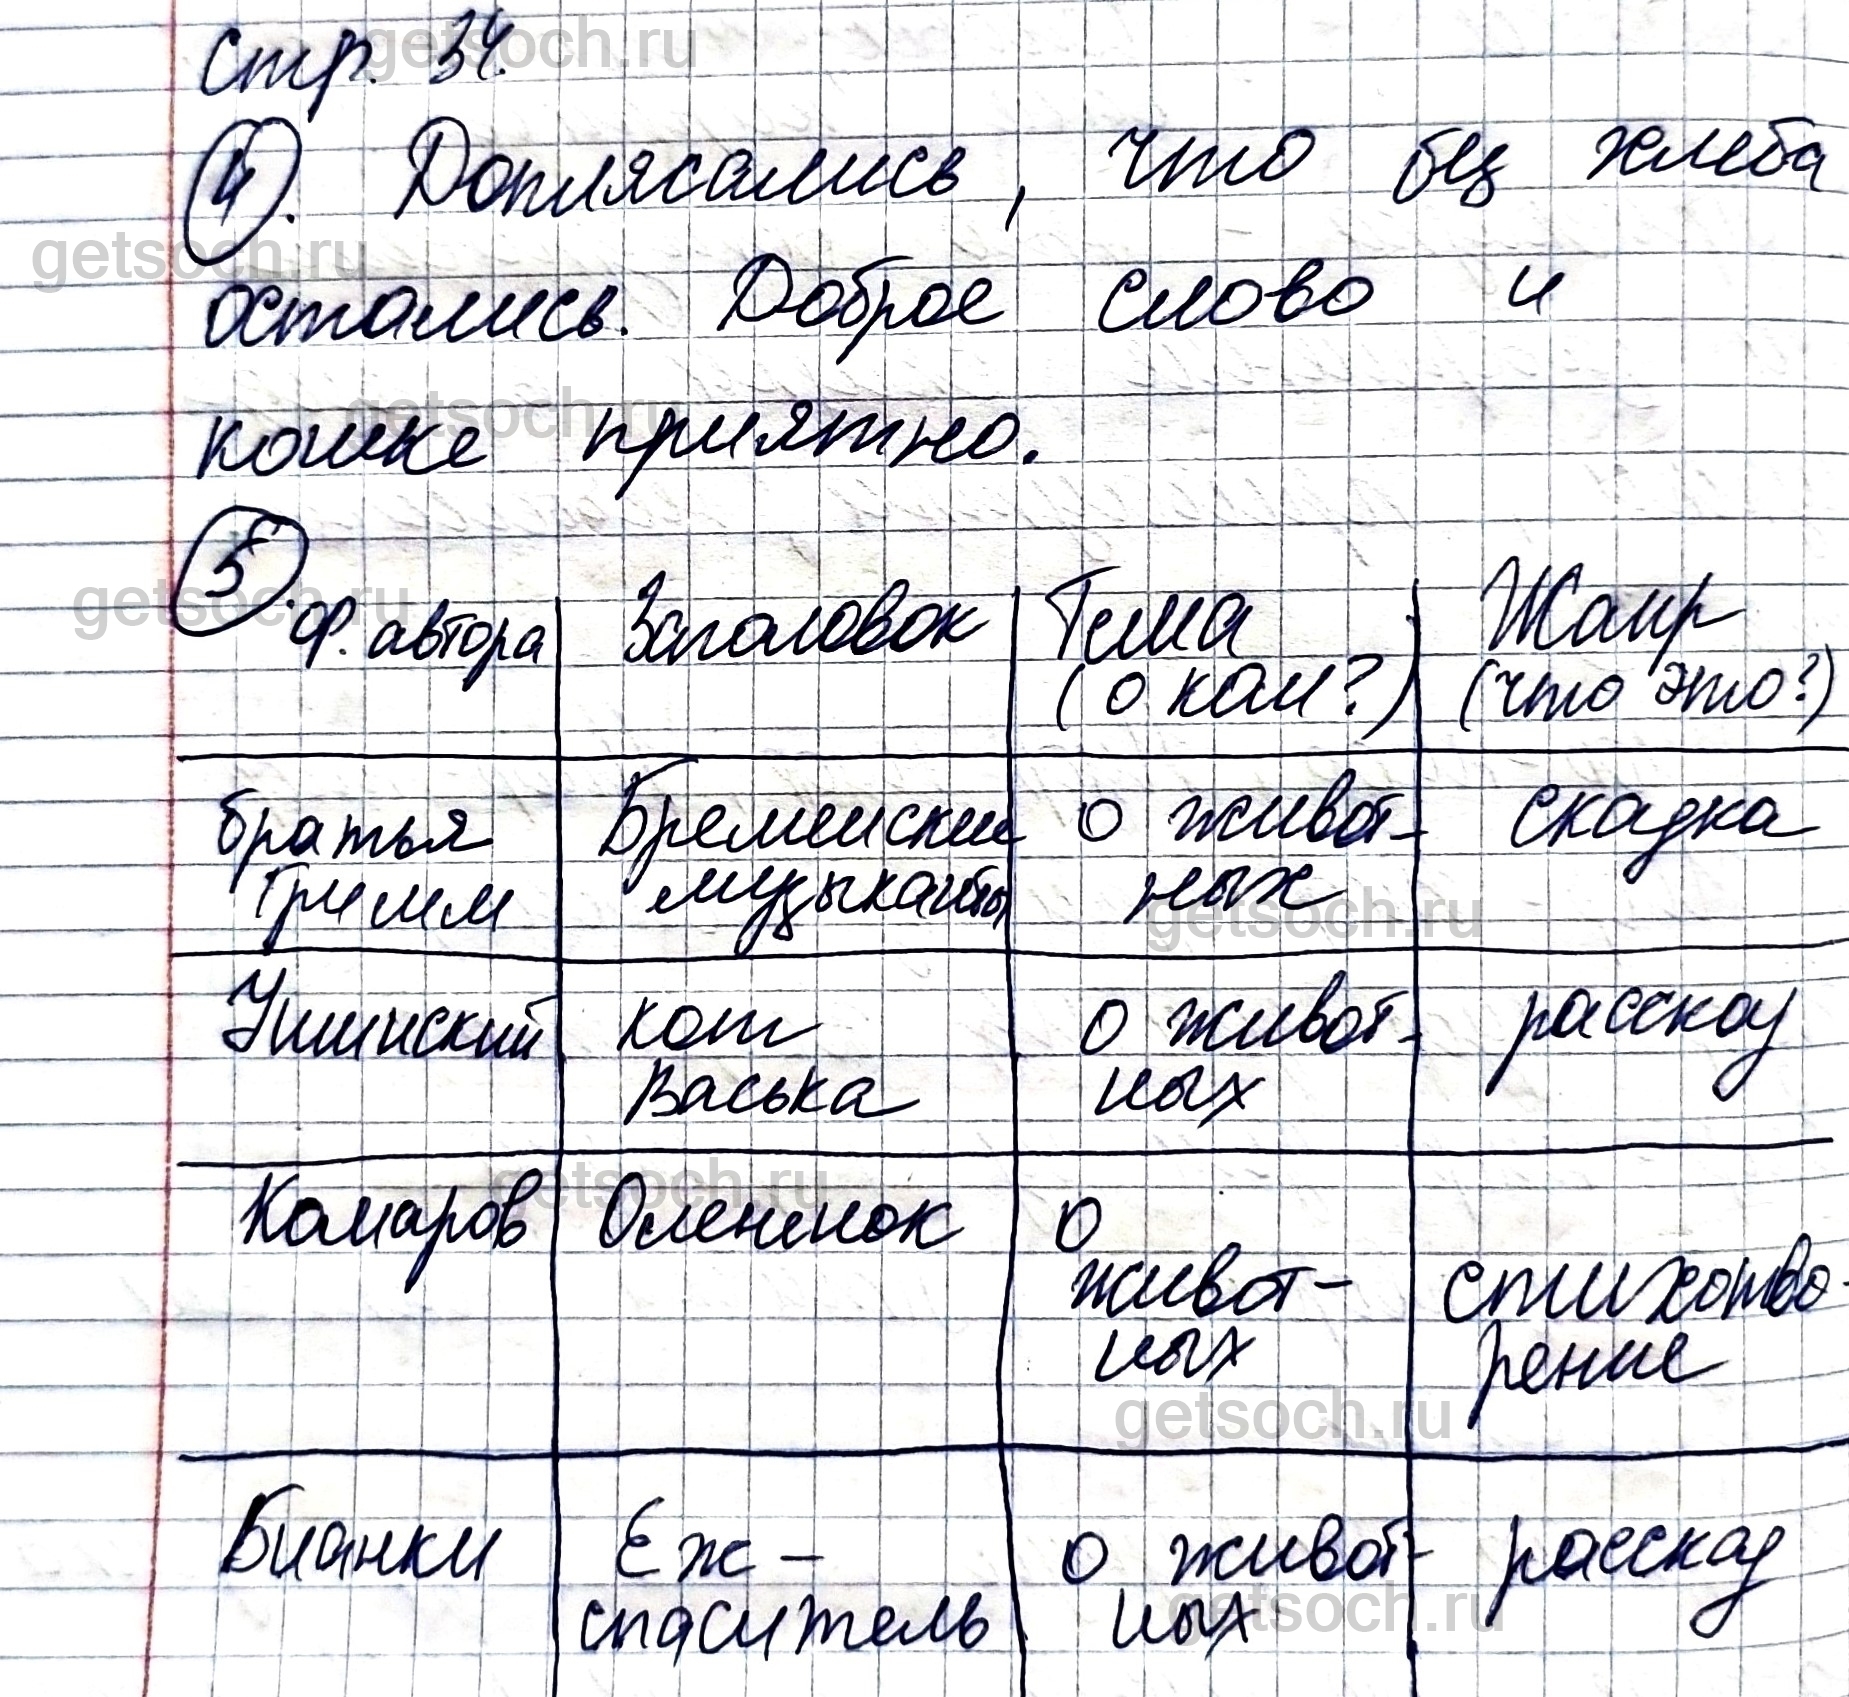 стр. 34.
4. Доплясались, что без хлеба
остались. Доброе слово и
кошке приятно.
5.
Ф. автора Заголовок Тема Жанр
(о ком?) (что это?)
братья Бременские о живот- сказка
Гримм музыканты ных
Ушинский кот о живот- рассказ
Васька ных
Комаров Олененок о
живот- стихотво-
ных рение
Бианки Еж- о живот- рассказ
спаситель ных
getsoch.ru
getsoch.ru
getsoch.ru
getsoch.ru
getsoch.ru
getsoch.ru
getsoch.ru
getsoch.ru